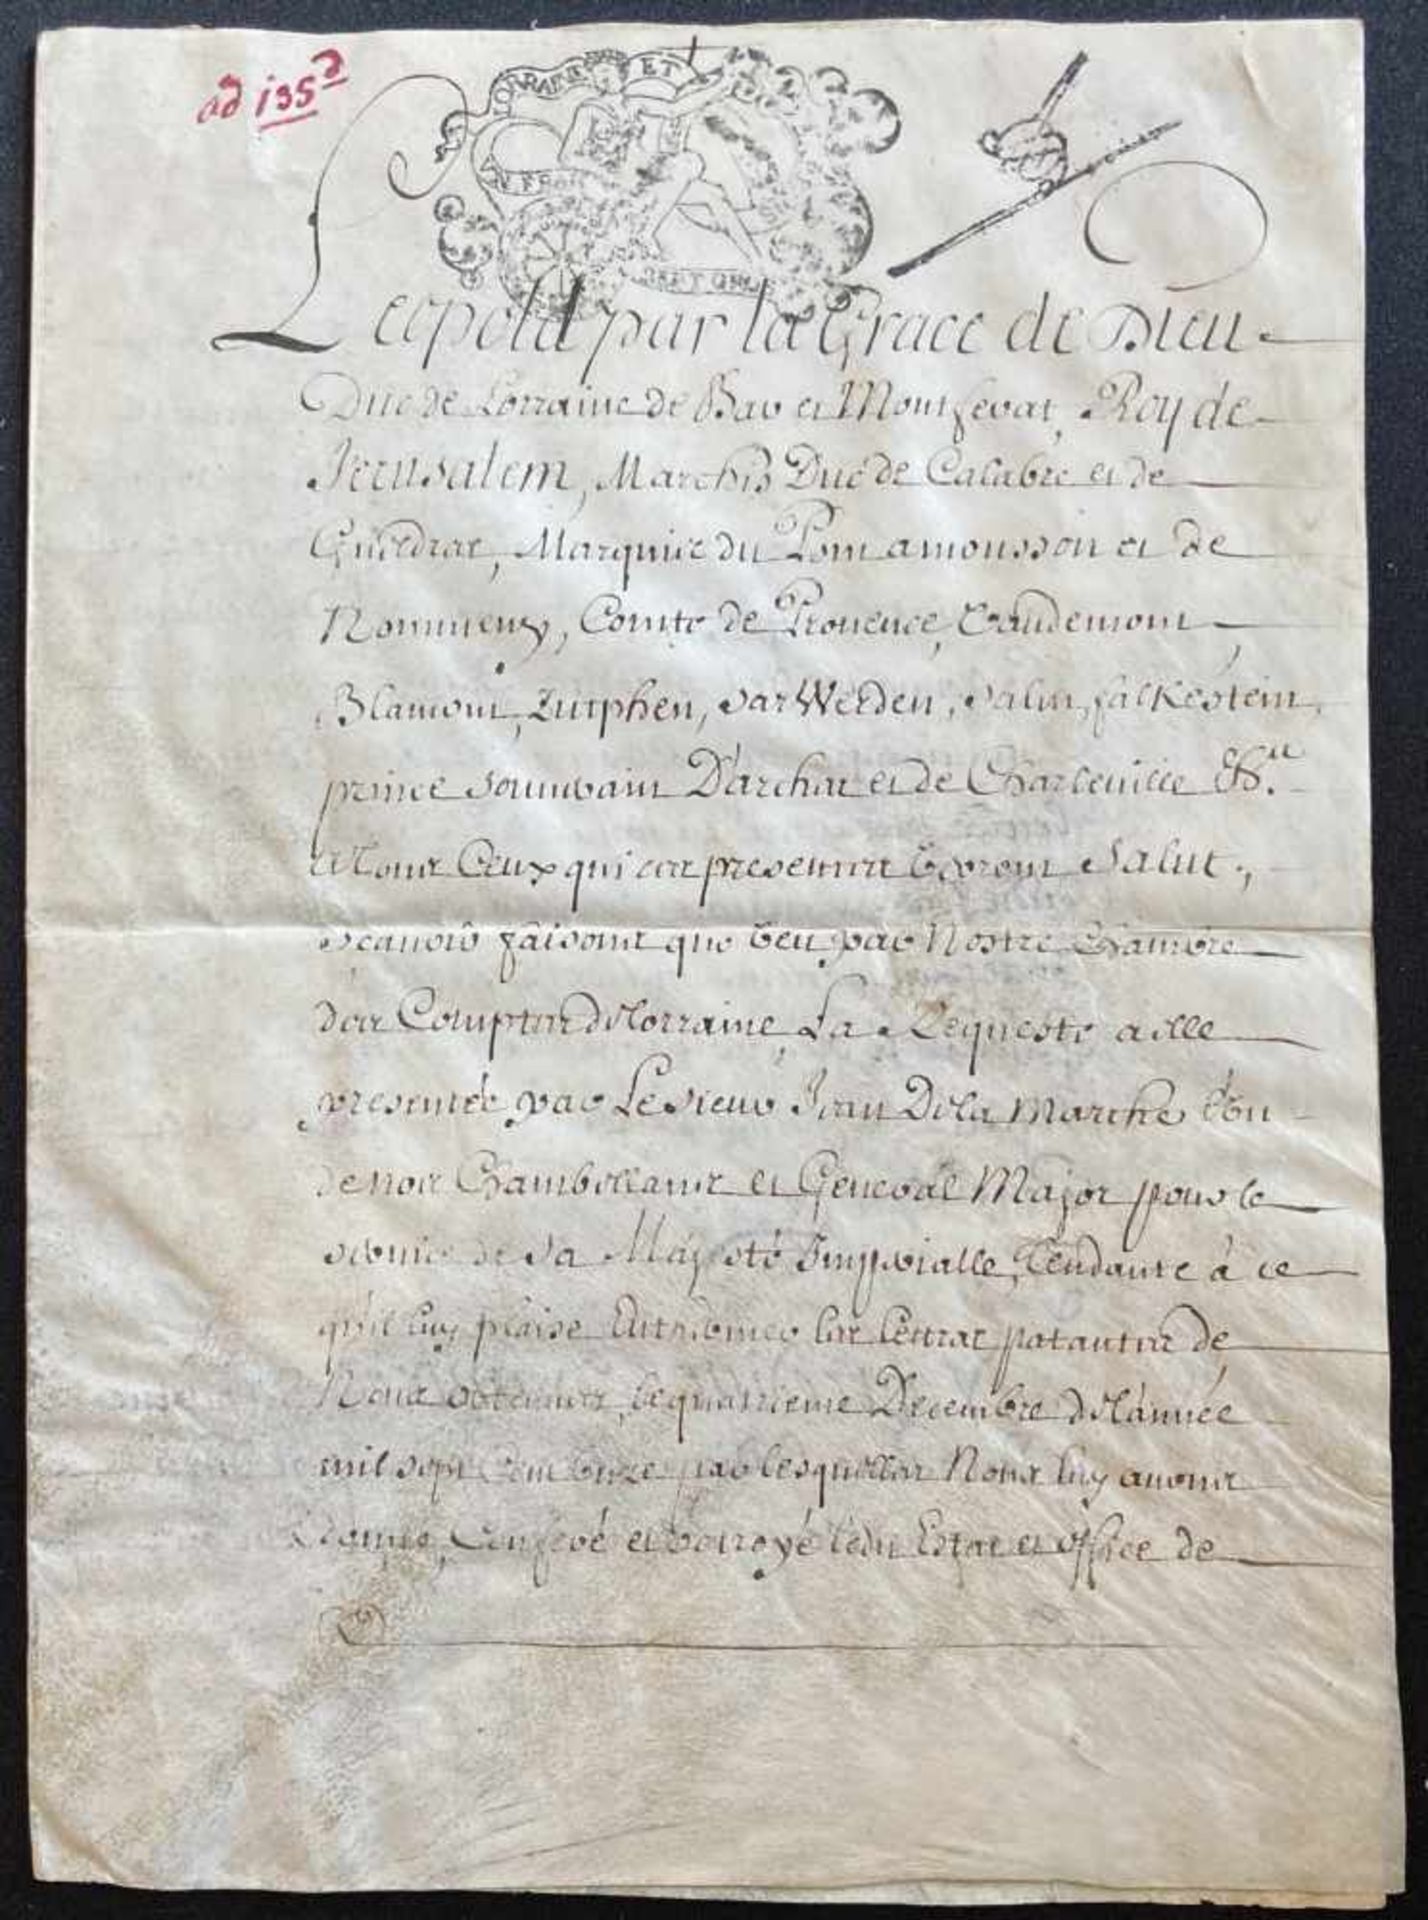 ad 135d
LORRAINE ET
BARET GROS
Leopold par la Grace de Dieu
Duc de Lorraine de Bar et Montferat, Roy de
Jerusalem, Marchis Duc de Calabre et de
Gueldres, Marquis du Pont amousson et de
Nommeny, Comte de Provence, Vaudemont,
Blamont, Zutphen, SarWerden, Salm, falkestein,
prince souverain D'arches et de Charleville &a.
A Tous Ceux qui ces presentes Verront Salut.,
Scavoir faisons que Veu par Nostre Chambre
des Comptes de Lorraine, La Requeste a elle
presentée par Le Sieur Jean De la Marche l'un
de nos Chambellans et General Major pour le
service de Sa Majesté Imperialle, Tendante à ce
qu'il luy plaise Enteriner les lettres patantes de
Nous obtenues, le quatrieme Decembre de l'année
mil sept Cent Onze par lesquelles Nous luy avons
Donné, Conferé et octroyé ledit Estat et office de